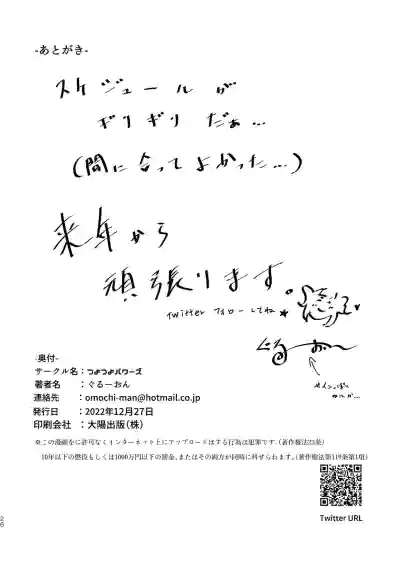 -あとがき-
スケジュールが
ギリギリ だぁ…
(間に合ってよかった…)
来年から
頑張ります。
twitter フォローしてね
-奥付-
サークル名：つよつよパワーズ
著者名　：ぐるーおん
連絡先　：omochi-man@hotmail.co.jp
発行日　：2022年12月27日
印刷会社　：大陽出版（株）
※この漫画をに許可なくインターネット上にアップロードはする行為は犯罪です.（著作権法23条）
10年以下の懲役もしくは1000万円以下の罰金、またはその両方が同時に科せられます。（著作権法第119条第1項）
Twitter URL
26